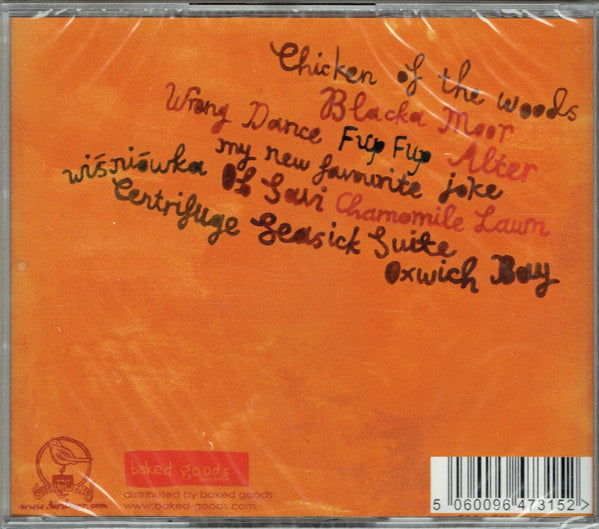 Chicken of the woods
Blacka Moor
Wrong Dance Fup Fup Alter
my new favourite joke
wiśniówka Ob Savi Chamomile Lawn
Centrifuge Seasick Suite
Oxwich Bay
baked goods
distributed by baked goods
www.baked-goods.com
5 060096 473152 >